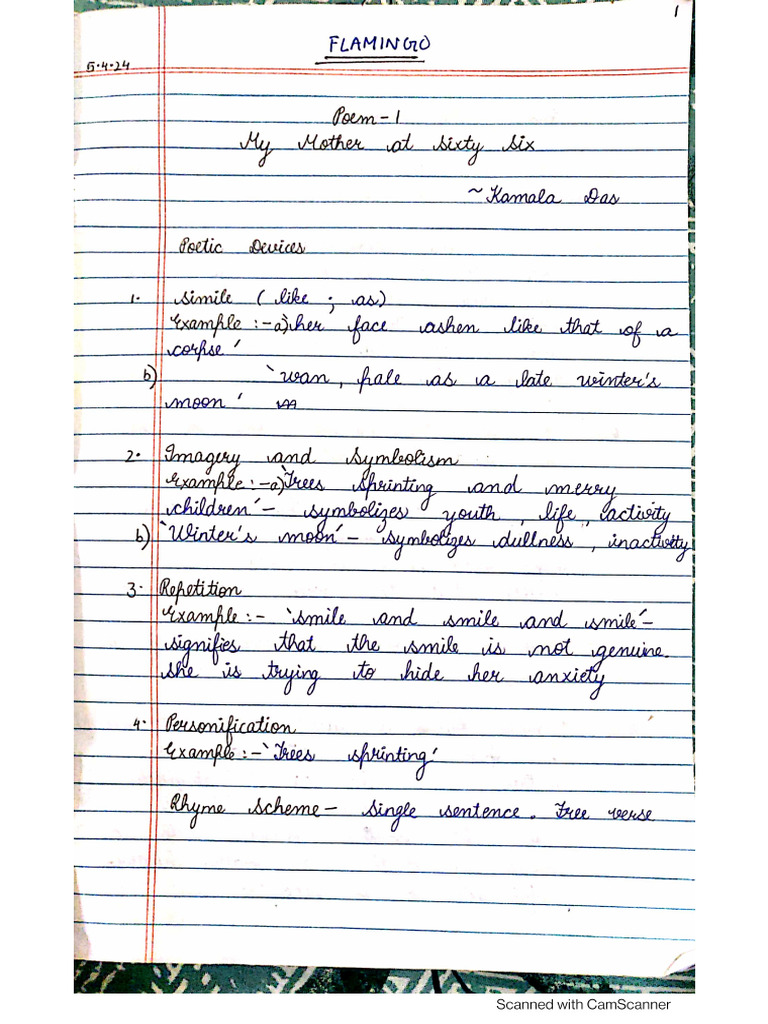 1
FLAMINGO
5.4.24
Poem - 1
My Mother at Sixty Six
~ Kamala Das
Poetic Devices
1. Simile ( like ; as)
Example :- a) 'her face ashen like that of a
corpse'
b) 'wan, pale as a late winter's
moon'
2. Imagery and Symbolism
Example :- a) 'Trees Sprinting and merry
children' - symbolizes youth, life, activity
b) 'Winter's moon' - symbolizes dullness, inactivity
3. Repetition
Example :- 'smile and smile and smile' -
signifies that the smile is not genuine.
She is trying to hide her anxiety
4. Personification
Example :- 'Trees sprinting'
Rhyme Scheme - Single sentence. Free verse
Scanned with CamScanner